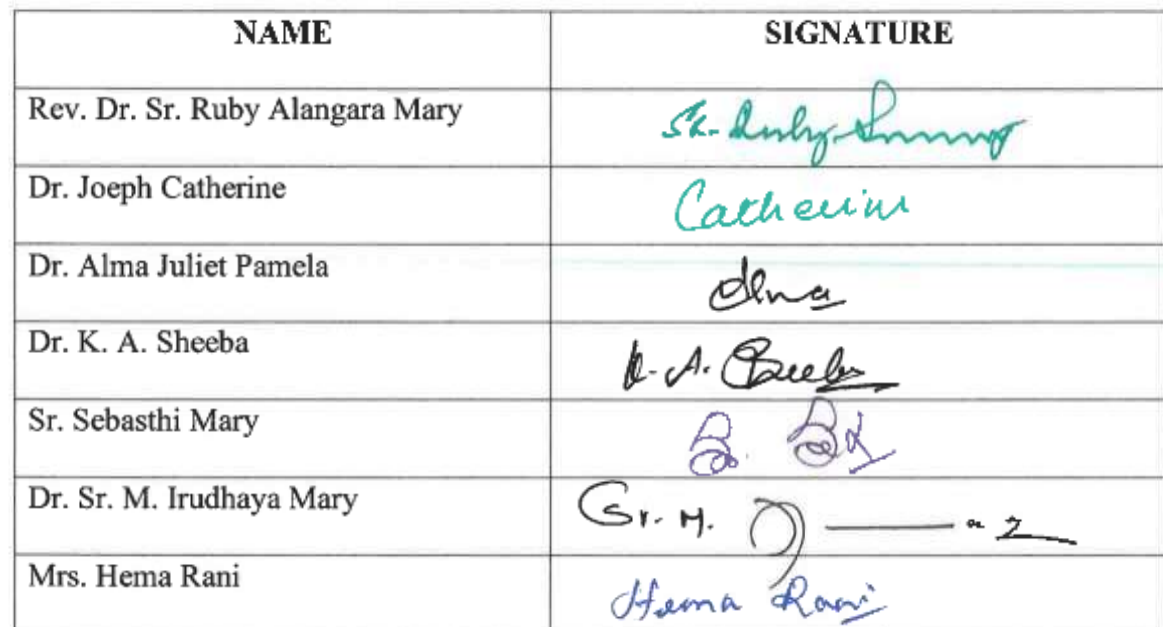 NAME SIGNATURE
Rev. Dr. Sr. Ruby Alangara Mary Sr. Ruby
Dr. Joeph Catherine Catherine
Dr. Alma Juliet Pamela Alma
Dr. K. A. Sheeba K. A. Sheeba
Sr. Sebasthi Mary
Dr. Sr. M. Irudhaya Mary Sr. M.
Mrs. Hema Rani Hema Rani